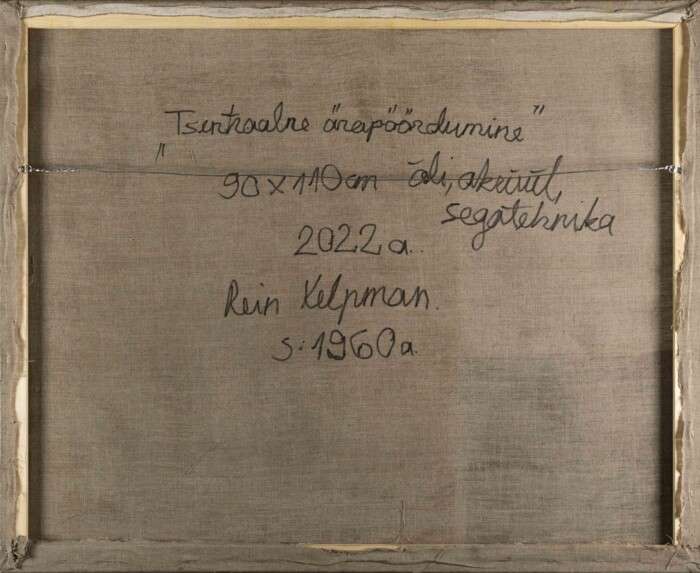 "Tsentraalne ärapöördumine"
90 x 110 cm õli, akrüül,
segatehnika
2022 a.
Rein Kelpman.
S: 1960 a.